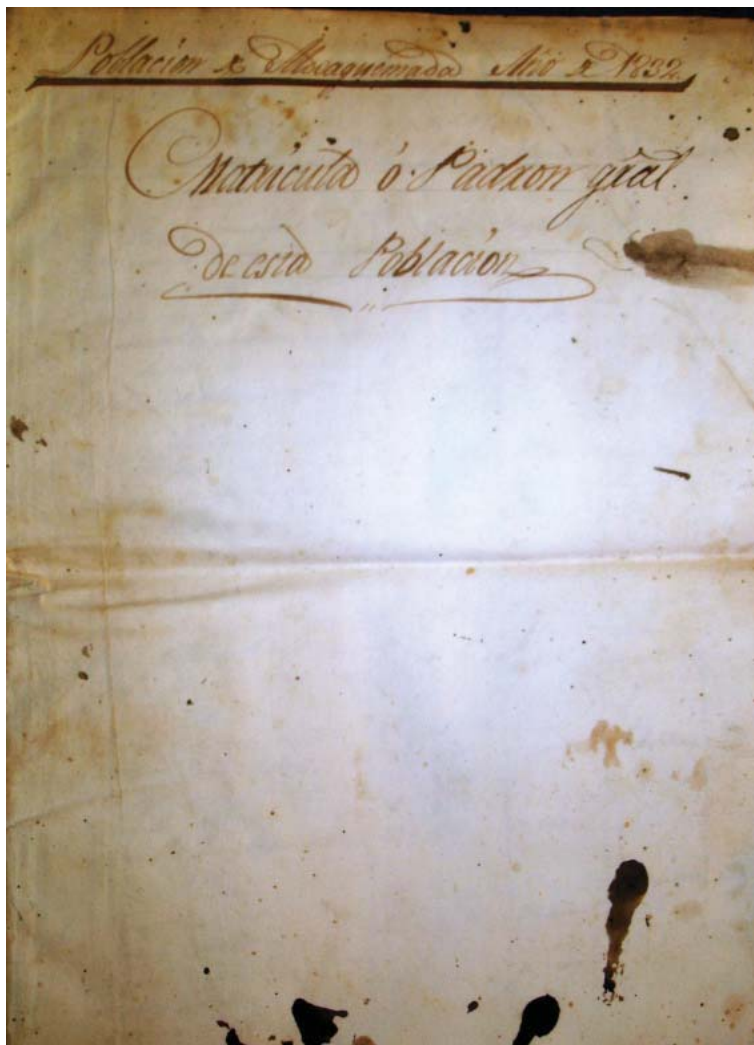 Poblacion de Mocaquemada Año de 1832
Matricula ó Padron gral.
de esta Poblacion